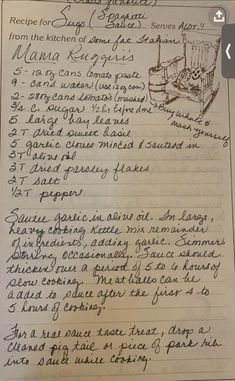 Recipe for Sugo (Spaghetti Sauce) Serves
from the kitchen of Some fat Italian
Mama Ruggeri's
5 - 12 oz cans tomato paste
9 - cans water (use 12 oz can)
2 - 28 oz cans tomato's (mashed)
3/4 C. Sugar 1/2 hr. before done
Buy whole & mash yourself
5 large bay leaves
2 T dried sweet basil
5 garlic cloves minced & sauteed in
3 T olive oil
3 T dried parsley flakes
2 T salt
1/2 T pepper
Sautee garlic in olive oil. In large,
heavy cooking kettle mix remainder
of ingredients, adding garlic. Simmer
stirring occasionally. Sauce should
thicken over a period of 5 to 6 hours of
slow cooking. Meatballs can be
added to sauce after the first 4 to
5 hours of cooking.
For a real sauce taste treat, drop a
cleaned pig tail or piece of pork rib
into sauce while cooking.